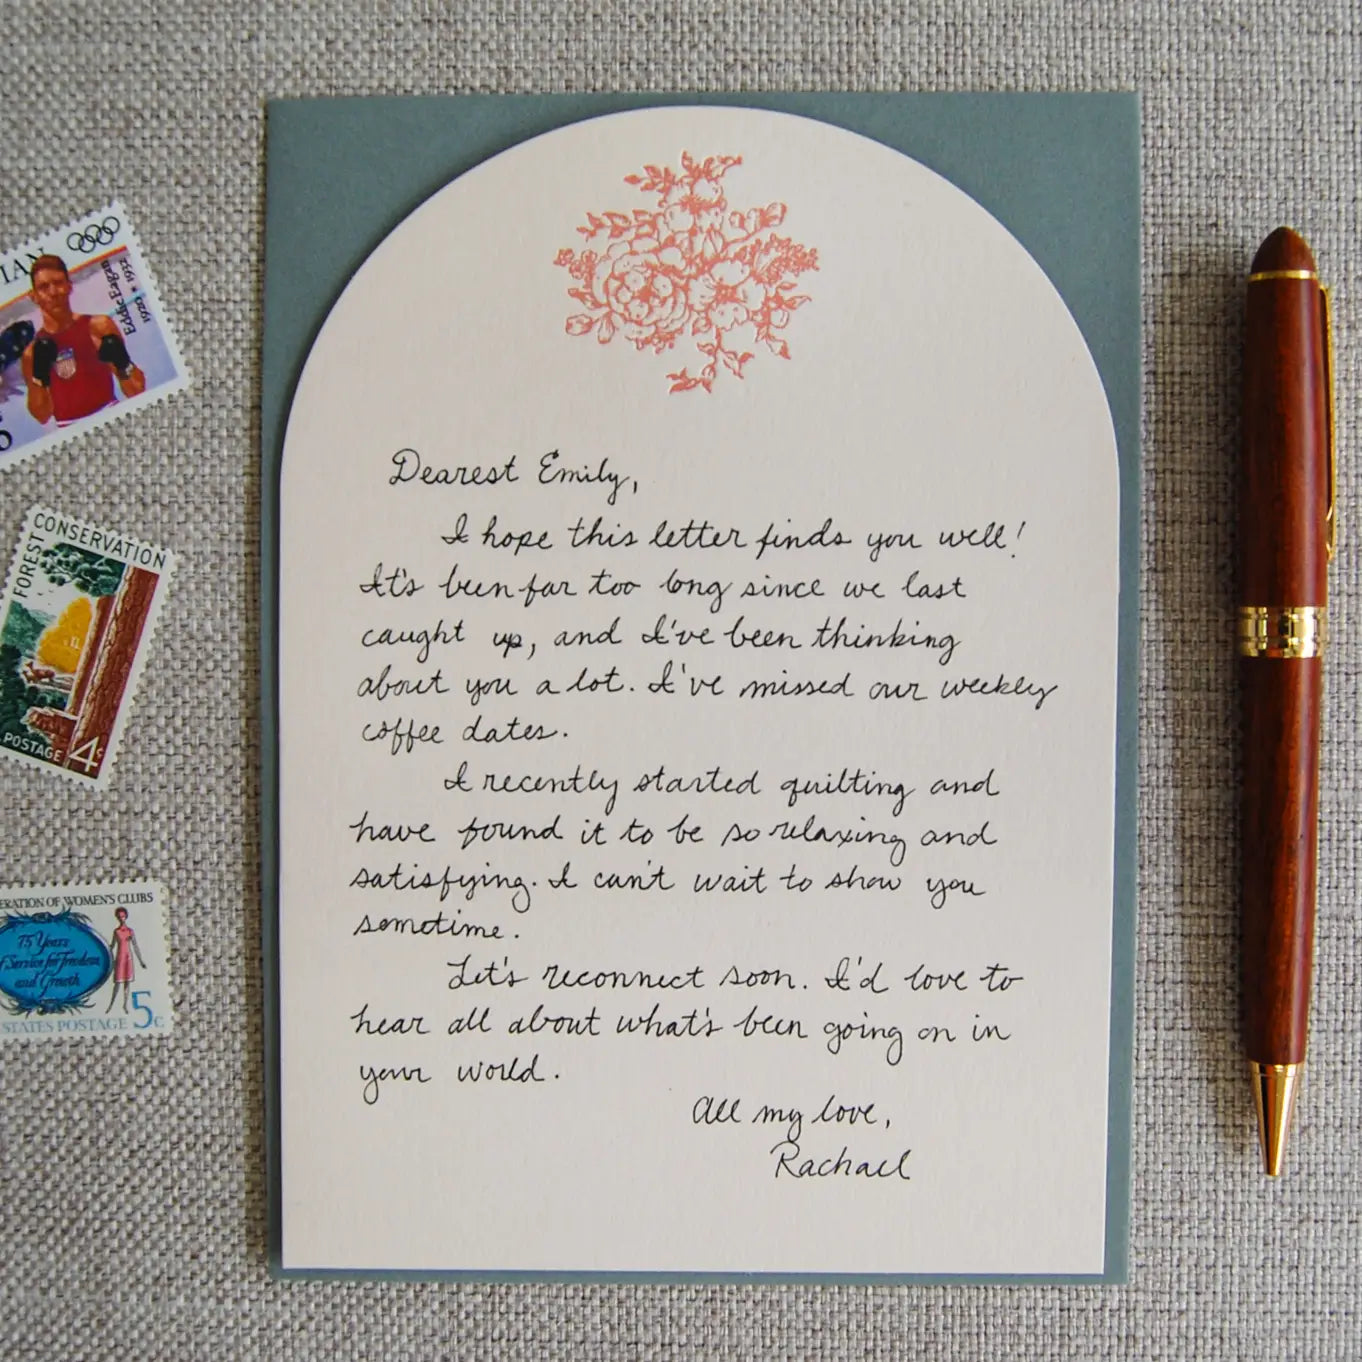 IAN
Eddie Eagan
1920 * 1932
FOREST CONSERVATION
POSTAGE 4c
ERATION OF WOMEN'S CLUBS
75 Years
of Service for Freedom
and Growth
STATES POSTAGE 5c
Dearest Emily,
I hope this letter finds you well!
It's been far too long since we last
caught up, and I've been thinking
about you a lot. I've missed our weekly
coffee dates.
I recently started quilting and
have found it to be so relaxing and
satisfying. I can't wait to show you
sometime.
Let's reconnect soon. I'd love to
hear all about what's been going on in
your world.
All my love,
Rachael